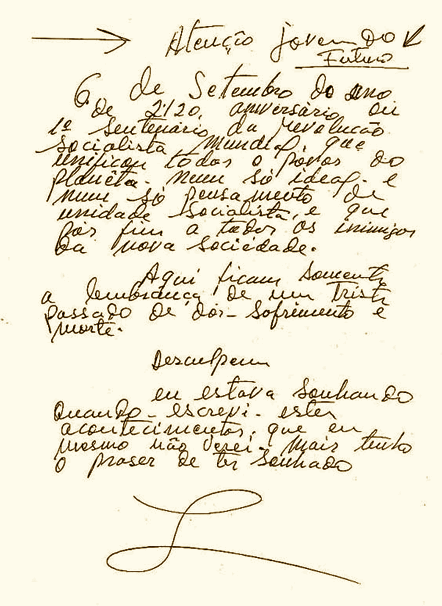 Atenção jovem do
Futuro
6 de Setembro do ano
de 2120, aniversário ou
1º Sentenário da revolução
Socialista Mundial, que
unificou todos o povos do
planeta num só ideal e
num só pensamento de
unidade socialista, e que
pôs fim a todos os inimigos
da nova sociedade.
Aqui ficam somente
a lembrança de um Triste
passado de dor - sofrimento e
morte.
Desculpem
eu estava sonhando
Quando - escrevi - estes
acontecimentos, que eu
mesmo não verei - Mais tenho
o praser de ter sonhado